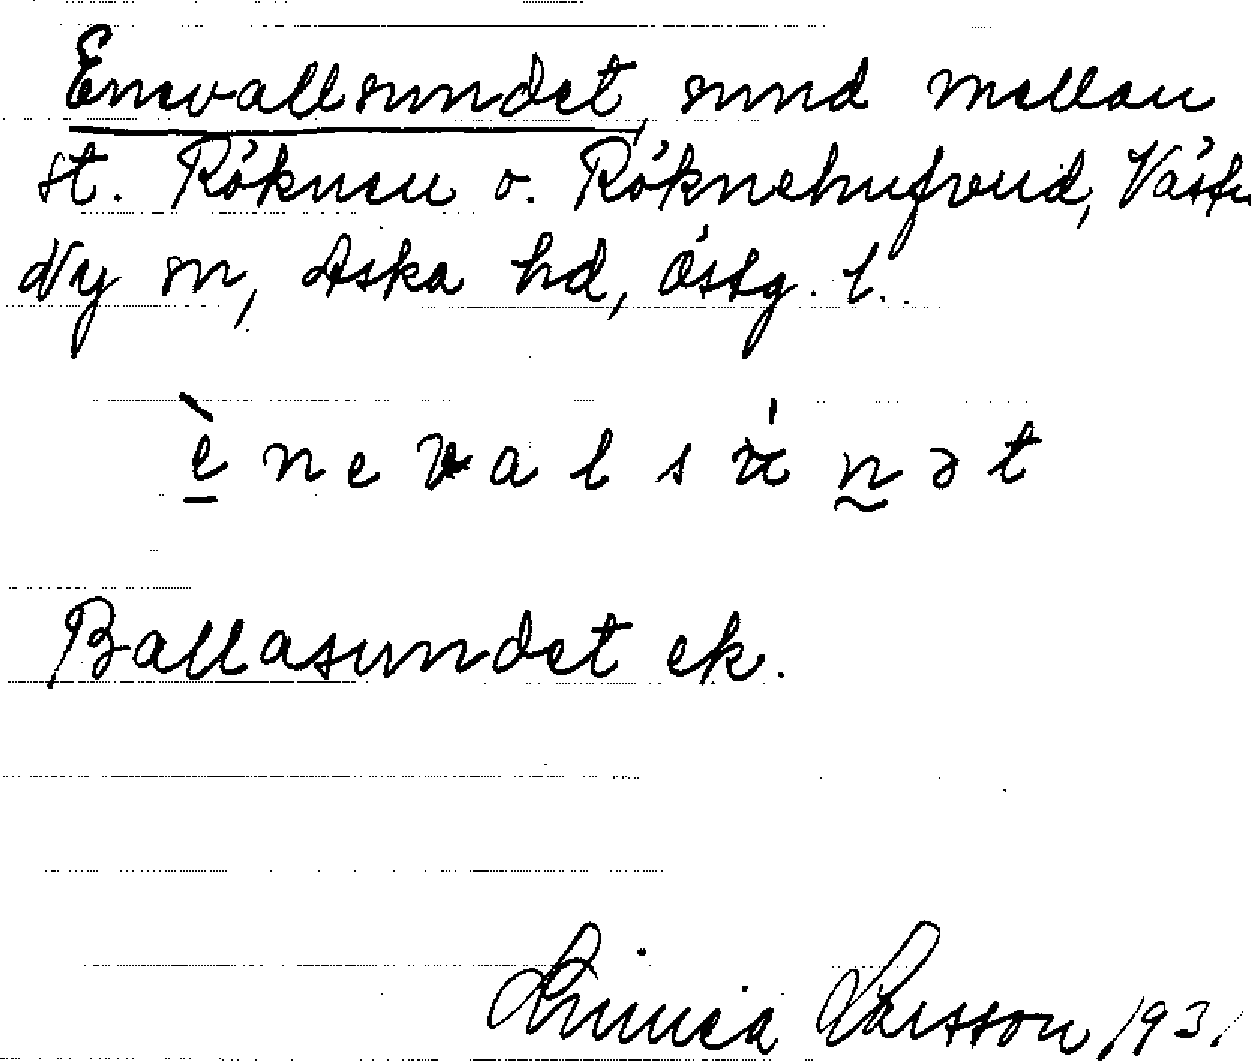 Enevallsundet, sund mellan
st. Röknen o. Röknehufvud, Västra
Ny sn, Aska hd, Östg. l.
è n e v a l s u̍ n ə t
Ballasundet ek.
Linnea Larsson 1931